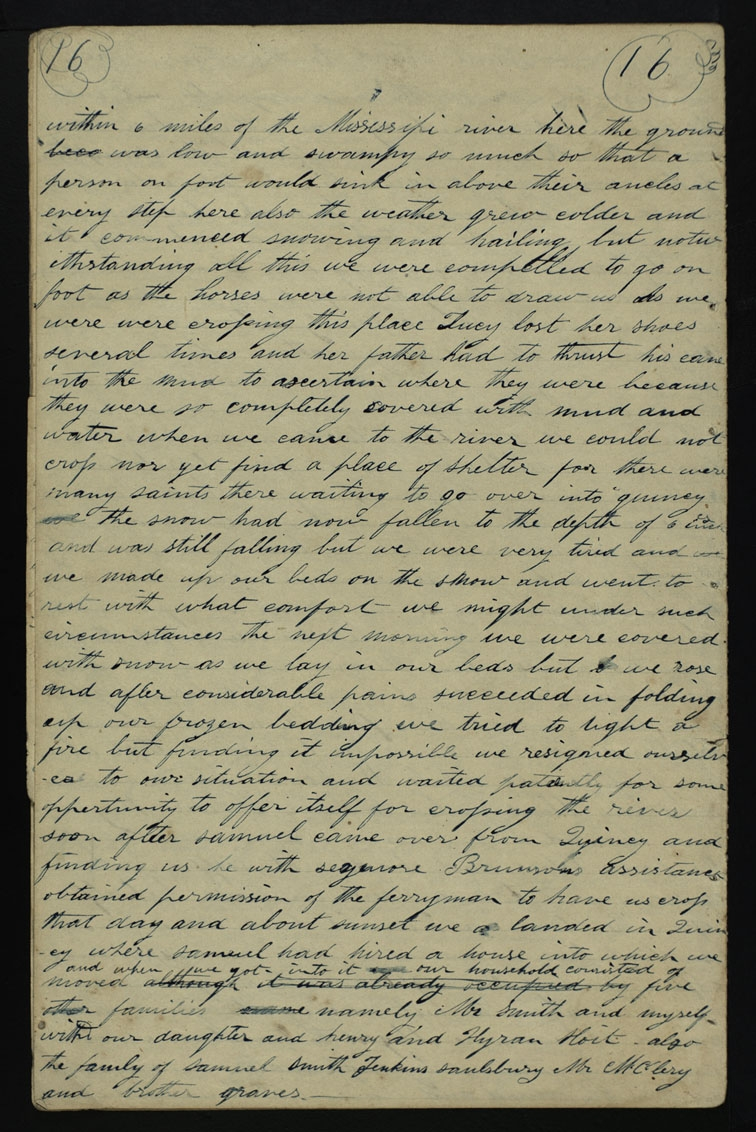 16 16
within 6 miles of the Missessipi river here the ground
beco was low and swampy so much so that a
person on foot would sink in above their ancles at
every step here also the weather grew colder and
it commenced snowing and hailing, but notw
ithstanding all this we were compelled to go on
foot as the horses were not able to draw us As we
were were crossing this place Lucy lost her shoes
several times and her father had to thrust his cane
into the mud to ascertain where they were because
they were so completely covered with mud and
water when we came to the river we could not
cross nor yet find a place of shelter for there were
many saints there waiting to go over into quincy
we the snow had now fallen to the depth of 6
and was still falling but we were very tired and
we made up our beds on the snow and went to
rest with what comfort we might under such
circumstances the next morning we were covered
with snow as we lay in our beds but we rose
and after considerable pains succeeded in folding
up our frozen bedding we tried to light a
fire but finding it impossible we resigned ourselv
-es to our situation and waited patently for some
oppertunity to offer itself for crossing the river
soon after samuel came over from Quincy and
finding us he with seymore Brunsons assistance
obtained permission of the ferryman to have us cross
that day and about sunset we landed in Quin
-cy where samuel had hired a house into which we
and when we got into it our household consisted of
moved although it was already occupied by five
other families came namely Mr Smith and myself
with our daughter and henry and Hyram Hoit also
the family of samuel smith Jenkins saulsbury Mr McClery
and brother graves.—